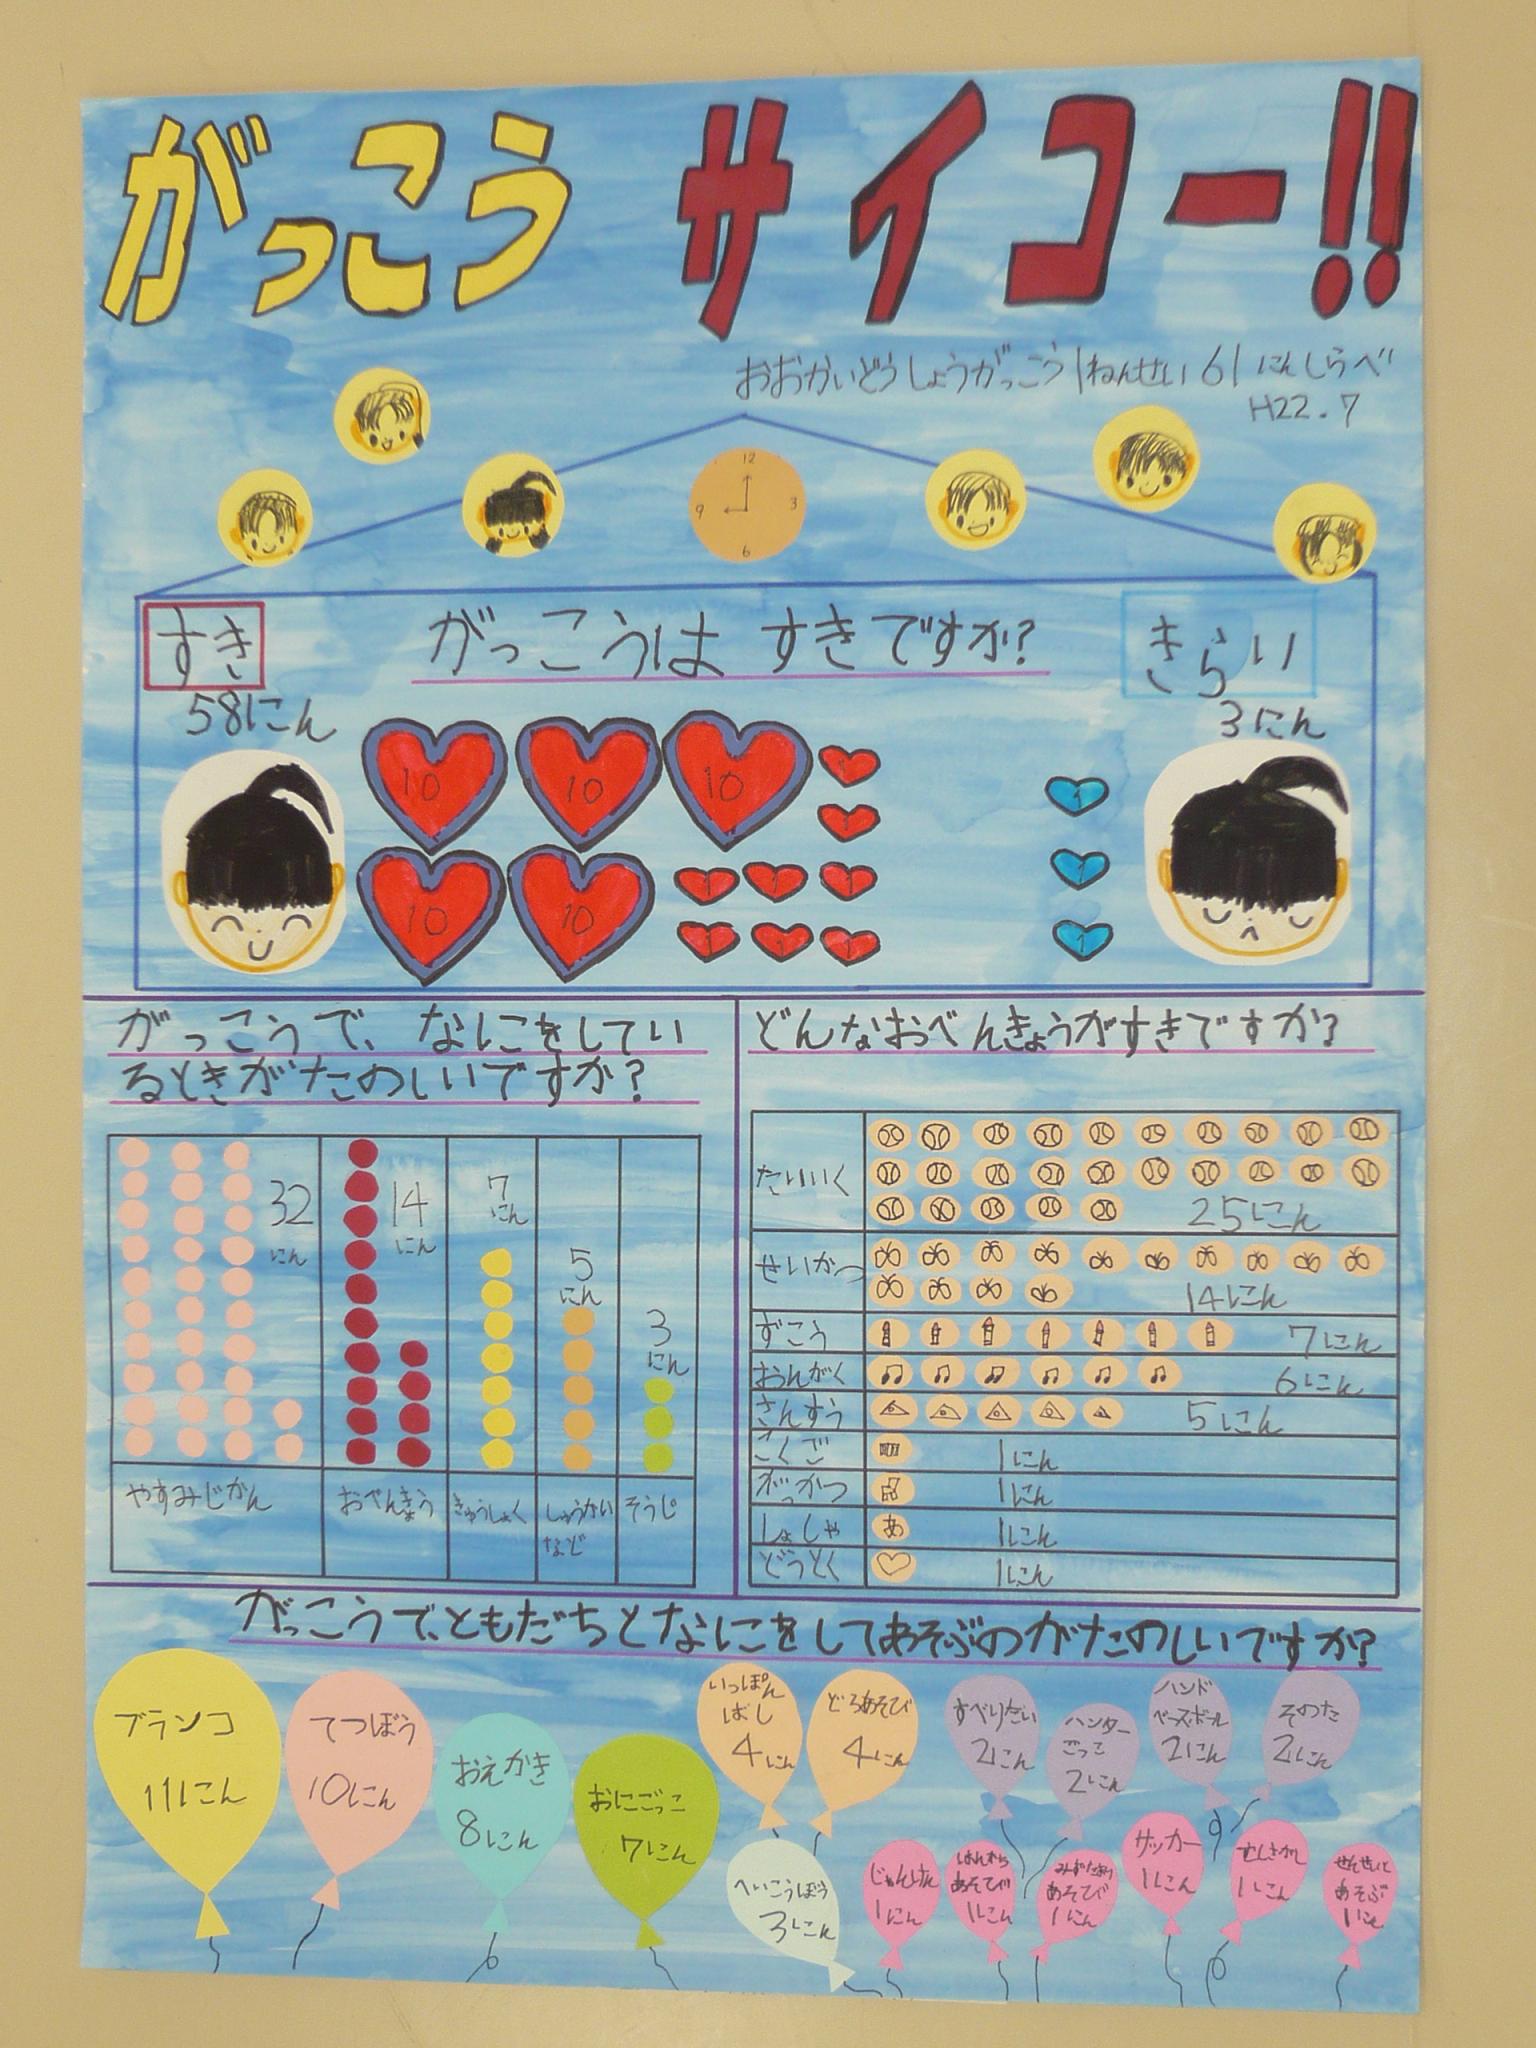 がっこう サイコー!!
おおかいどうしょうがっこう1ねんせい61にんしらべ
H22.7
12
3
6
9
すき
58にん
がっこうは すきですか?
きらい
3にん
10 10 10 1
1
10 10 1 1 1
1 1 1
1
1
1
がっこうで、なにをしてい
るときがたのしいですか?
32
にん
14
にん
7
にん
5
にん
3
にん
やすみじかん
おべんきょう
きゅうしょく
しゅうかい
など
そうじ
どんなおべんきょうがすきですか?
たいいく 25にん
せいかつ 14にん
ずこう 7にん
おんがく 6にん
さんすう 5にん
こくご 1にん
がっかつ 1にん
しょしゃ あ 1にん
どうとく 1にん
がっこうで、ともだちとなにをしてあそぶのがたのしいですか?
ブランコ
11にん
てつぼう
10にん
おえかき
8にん
おにごっこ
7にん
いっぽん
ばし
4にん
どろあそび
4にん
へいこうぼう
3にん
すべりだい
2にん
ハンター
ごっこ
2にん
ハンド
ベースボール
2にん
そのた
2にん
じゃんけん
1にん
あそび
1にん
あそび
1にん
サッカー
1にん
むしさがし
1にん
せんせいと
あそぶ
1にん